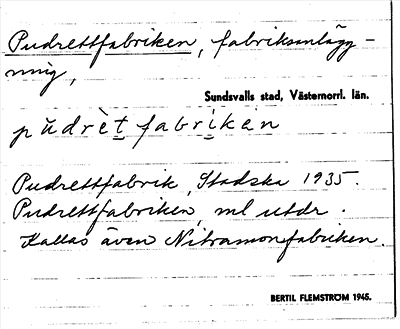 Pudrettfabriken, fabriksanlägg-
ning,
Sundsvalls stad, Västernorrl. län.
pŭdrètfabriken
Pudrettfabrik, Stadska 1935.
Pudrettfabriken, ml utdr.
Kallas även Nitramonfabriken.
BERTIL FLEMSTRÖM 1945.